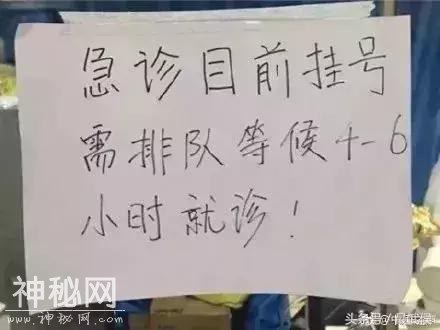 急诊目前挂号
需排队等候4-6
小时就诊！
神秘网
www.神秘网.com